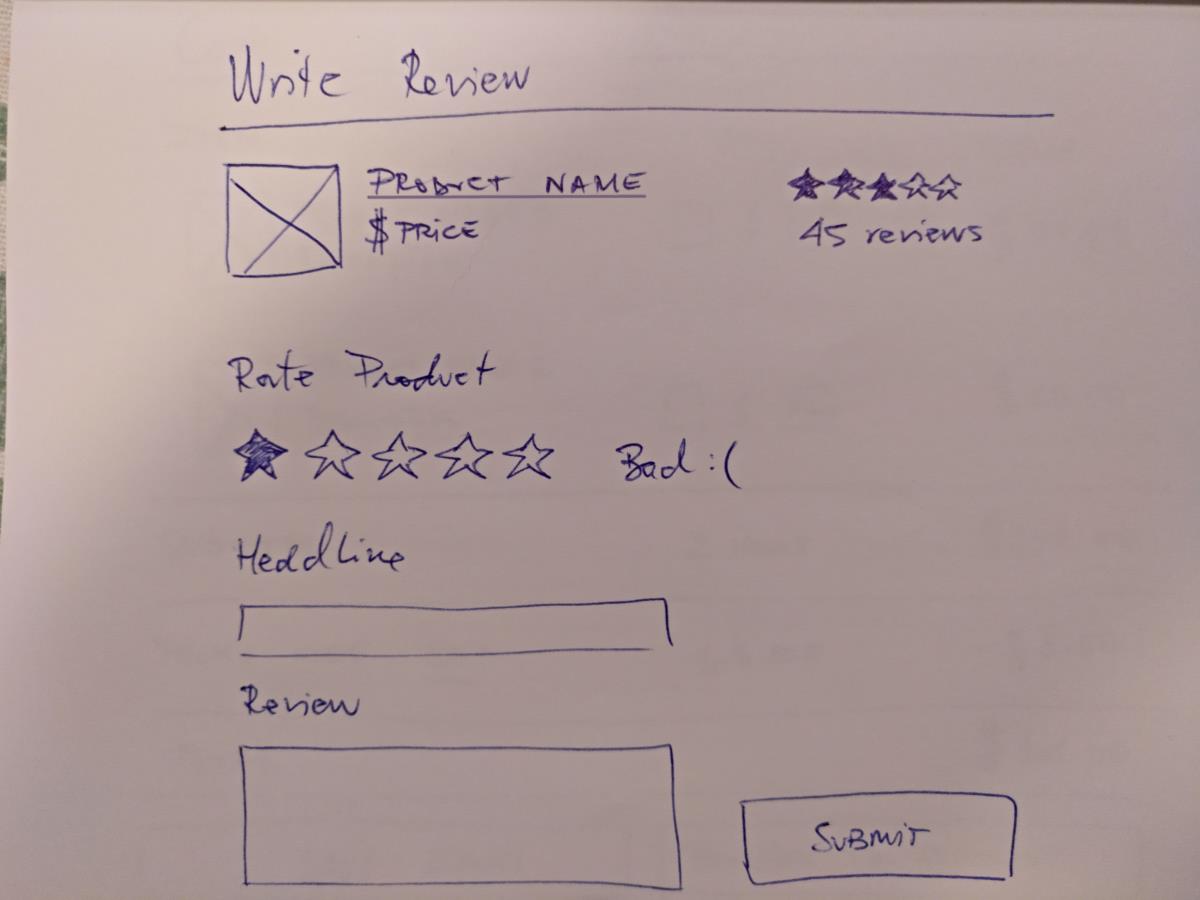 Write Review
PRODUCT NAME
$PRICE
45 reviews
Rate Product
Bad :(
Headline
Review
SUBMIT